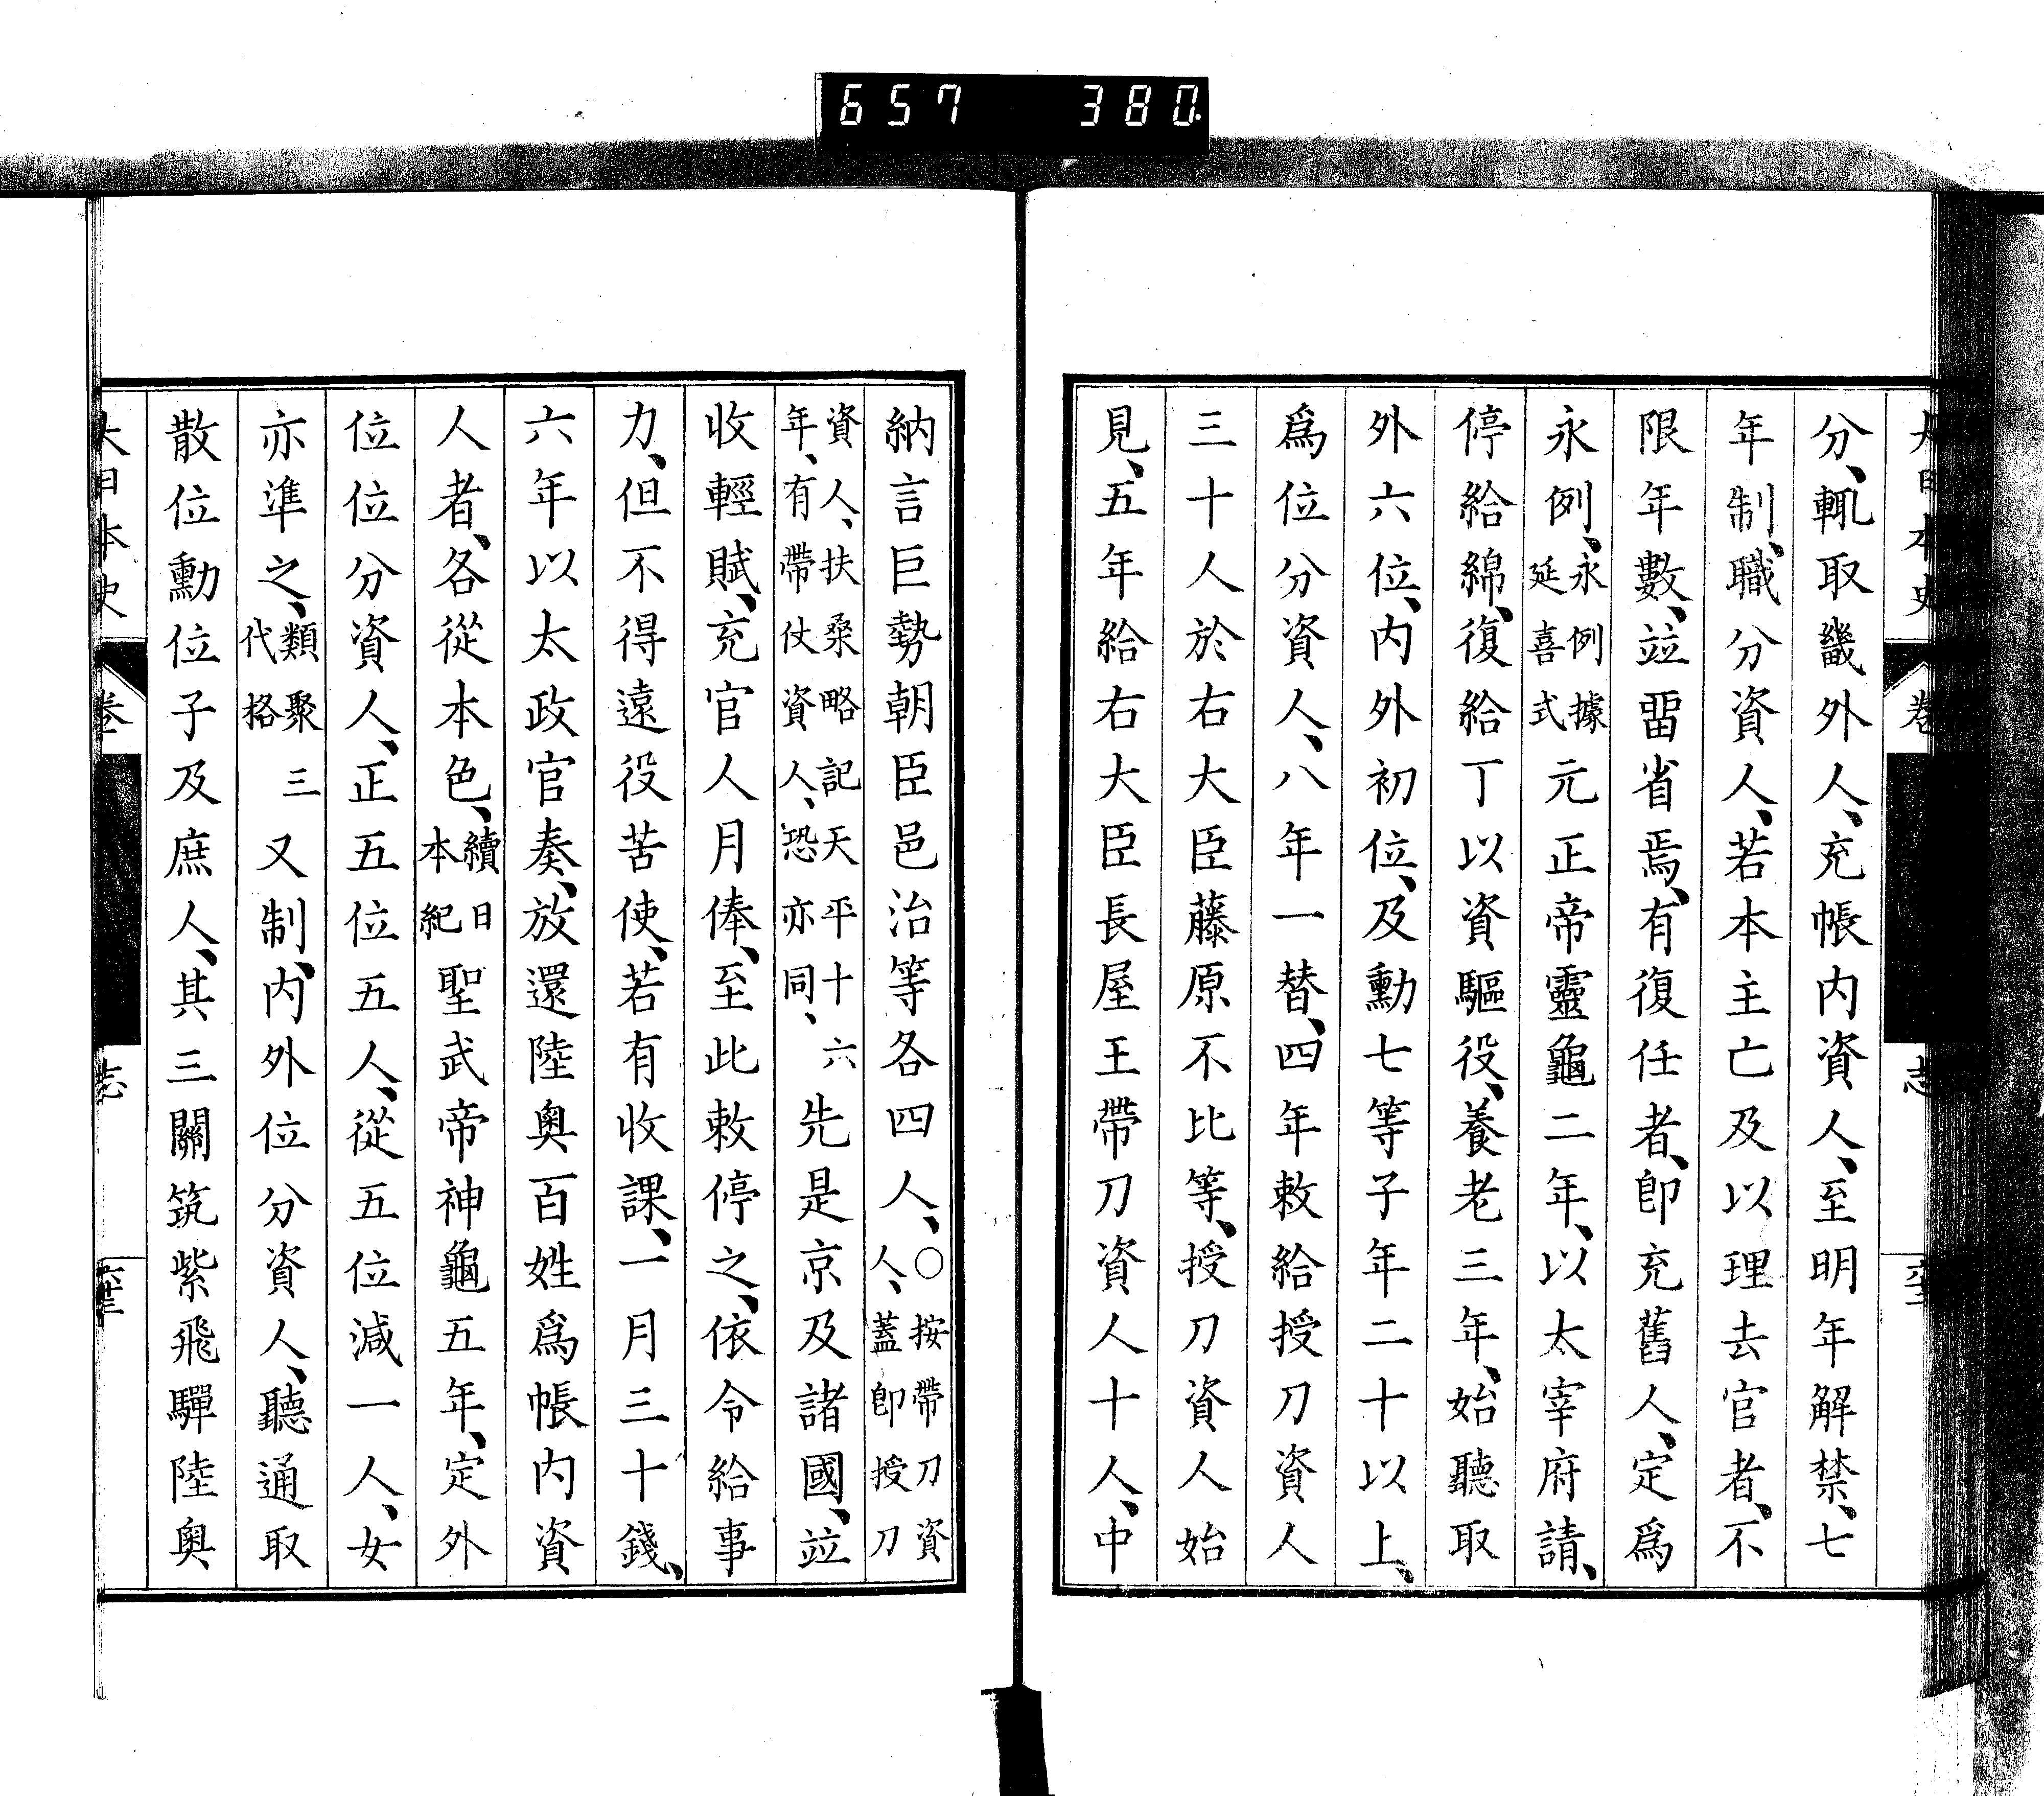 657 380
大日本史 卷 志
分、輒取畿外人、充帳内資人、至明年解禁、七
年制、職分資人、若本主亡及以理去官者、不
限年數、竝留省焉、有復任者、卽充舊人、定爲
永例、永例據延喜式元正帝靈龜二年、以太宰府請、
停給綿、復給丁以資驅役、養老三年、始聽取
外六位、内外初位、及勳七等子年二十以上、
爲位分資人、八年一替、四年敕給授刀資人
三十人於右大臣藤原不比等、授刀資人始
見、五年給右大臣長屋王帶刀資人十人、中
納言巨勢朝臣邑治等各四人、〇按帶刀資人、蓋卽授刀
資人、扶桑略記天平十六年、有帶仗資人、恐亦同、先是京及諸國、竝
收輕賦、充官人月俸、至此敕停之、依令給事
力、但不得遠役苦使、若有收課、一月三十錢、
六年以太政官奏、放還陸奥百姓爲帳内資
人者、各從本色、續日本紀聖武帝神龜五年、定外
位位分資人、正五位五人、從五位減一人、女
亦準之、類聚三代格又制、内外位分資人、聽通取
散位勳位子及庶人、其三關筑紫飛驒陸奥
大日本史 卷 志